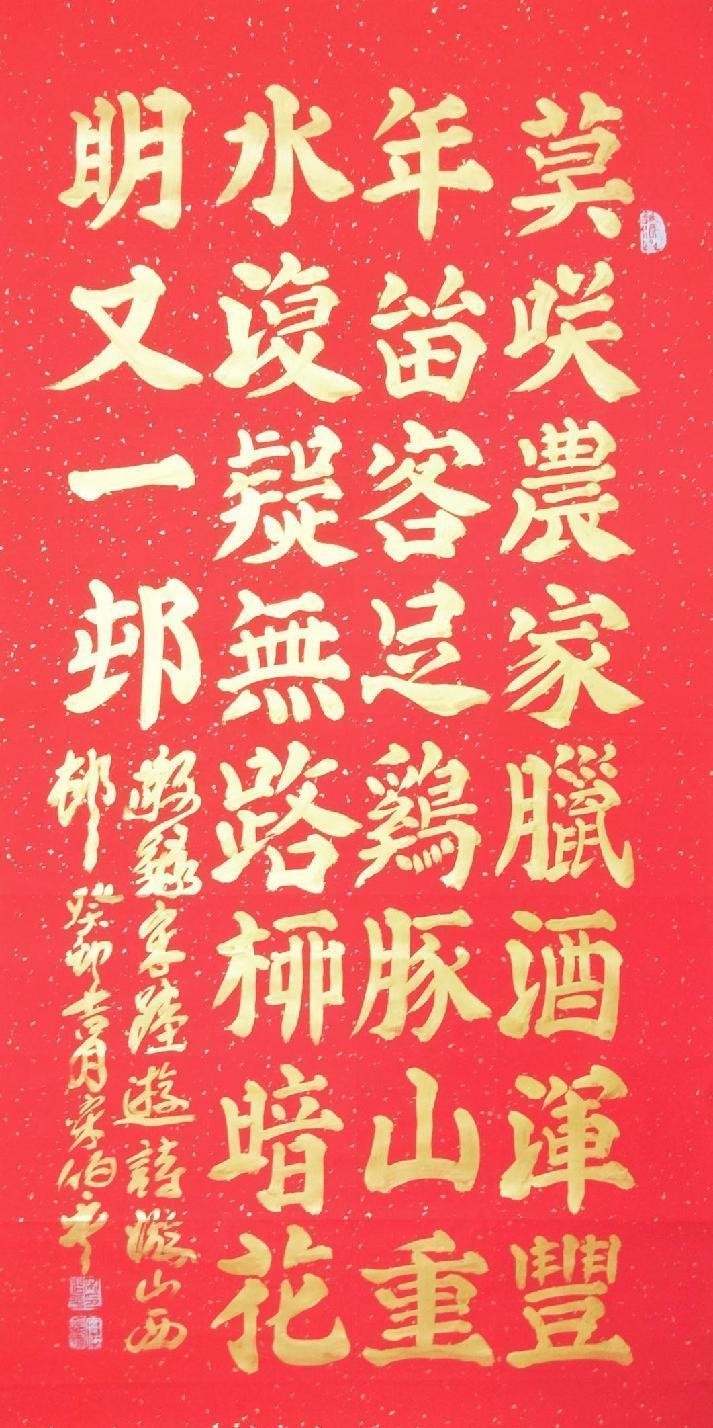 莫咲農家臘酒渾豐
年畄客足鷄豚山重
水復疑無路桺暗花
明又一邨
敬錄宋陸遊詩遊山西
邨癸卯吉月宋伯